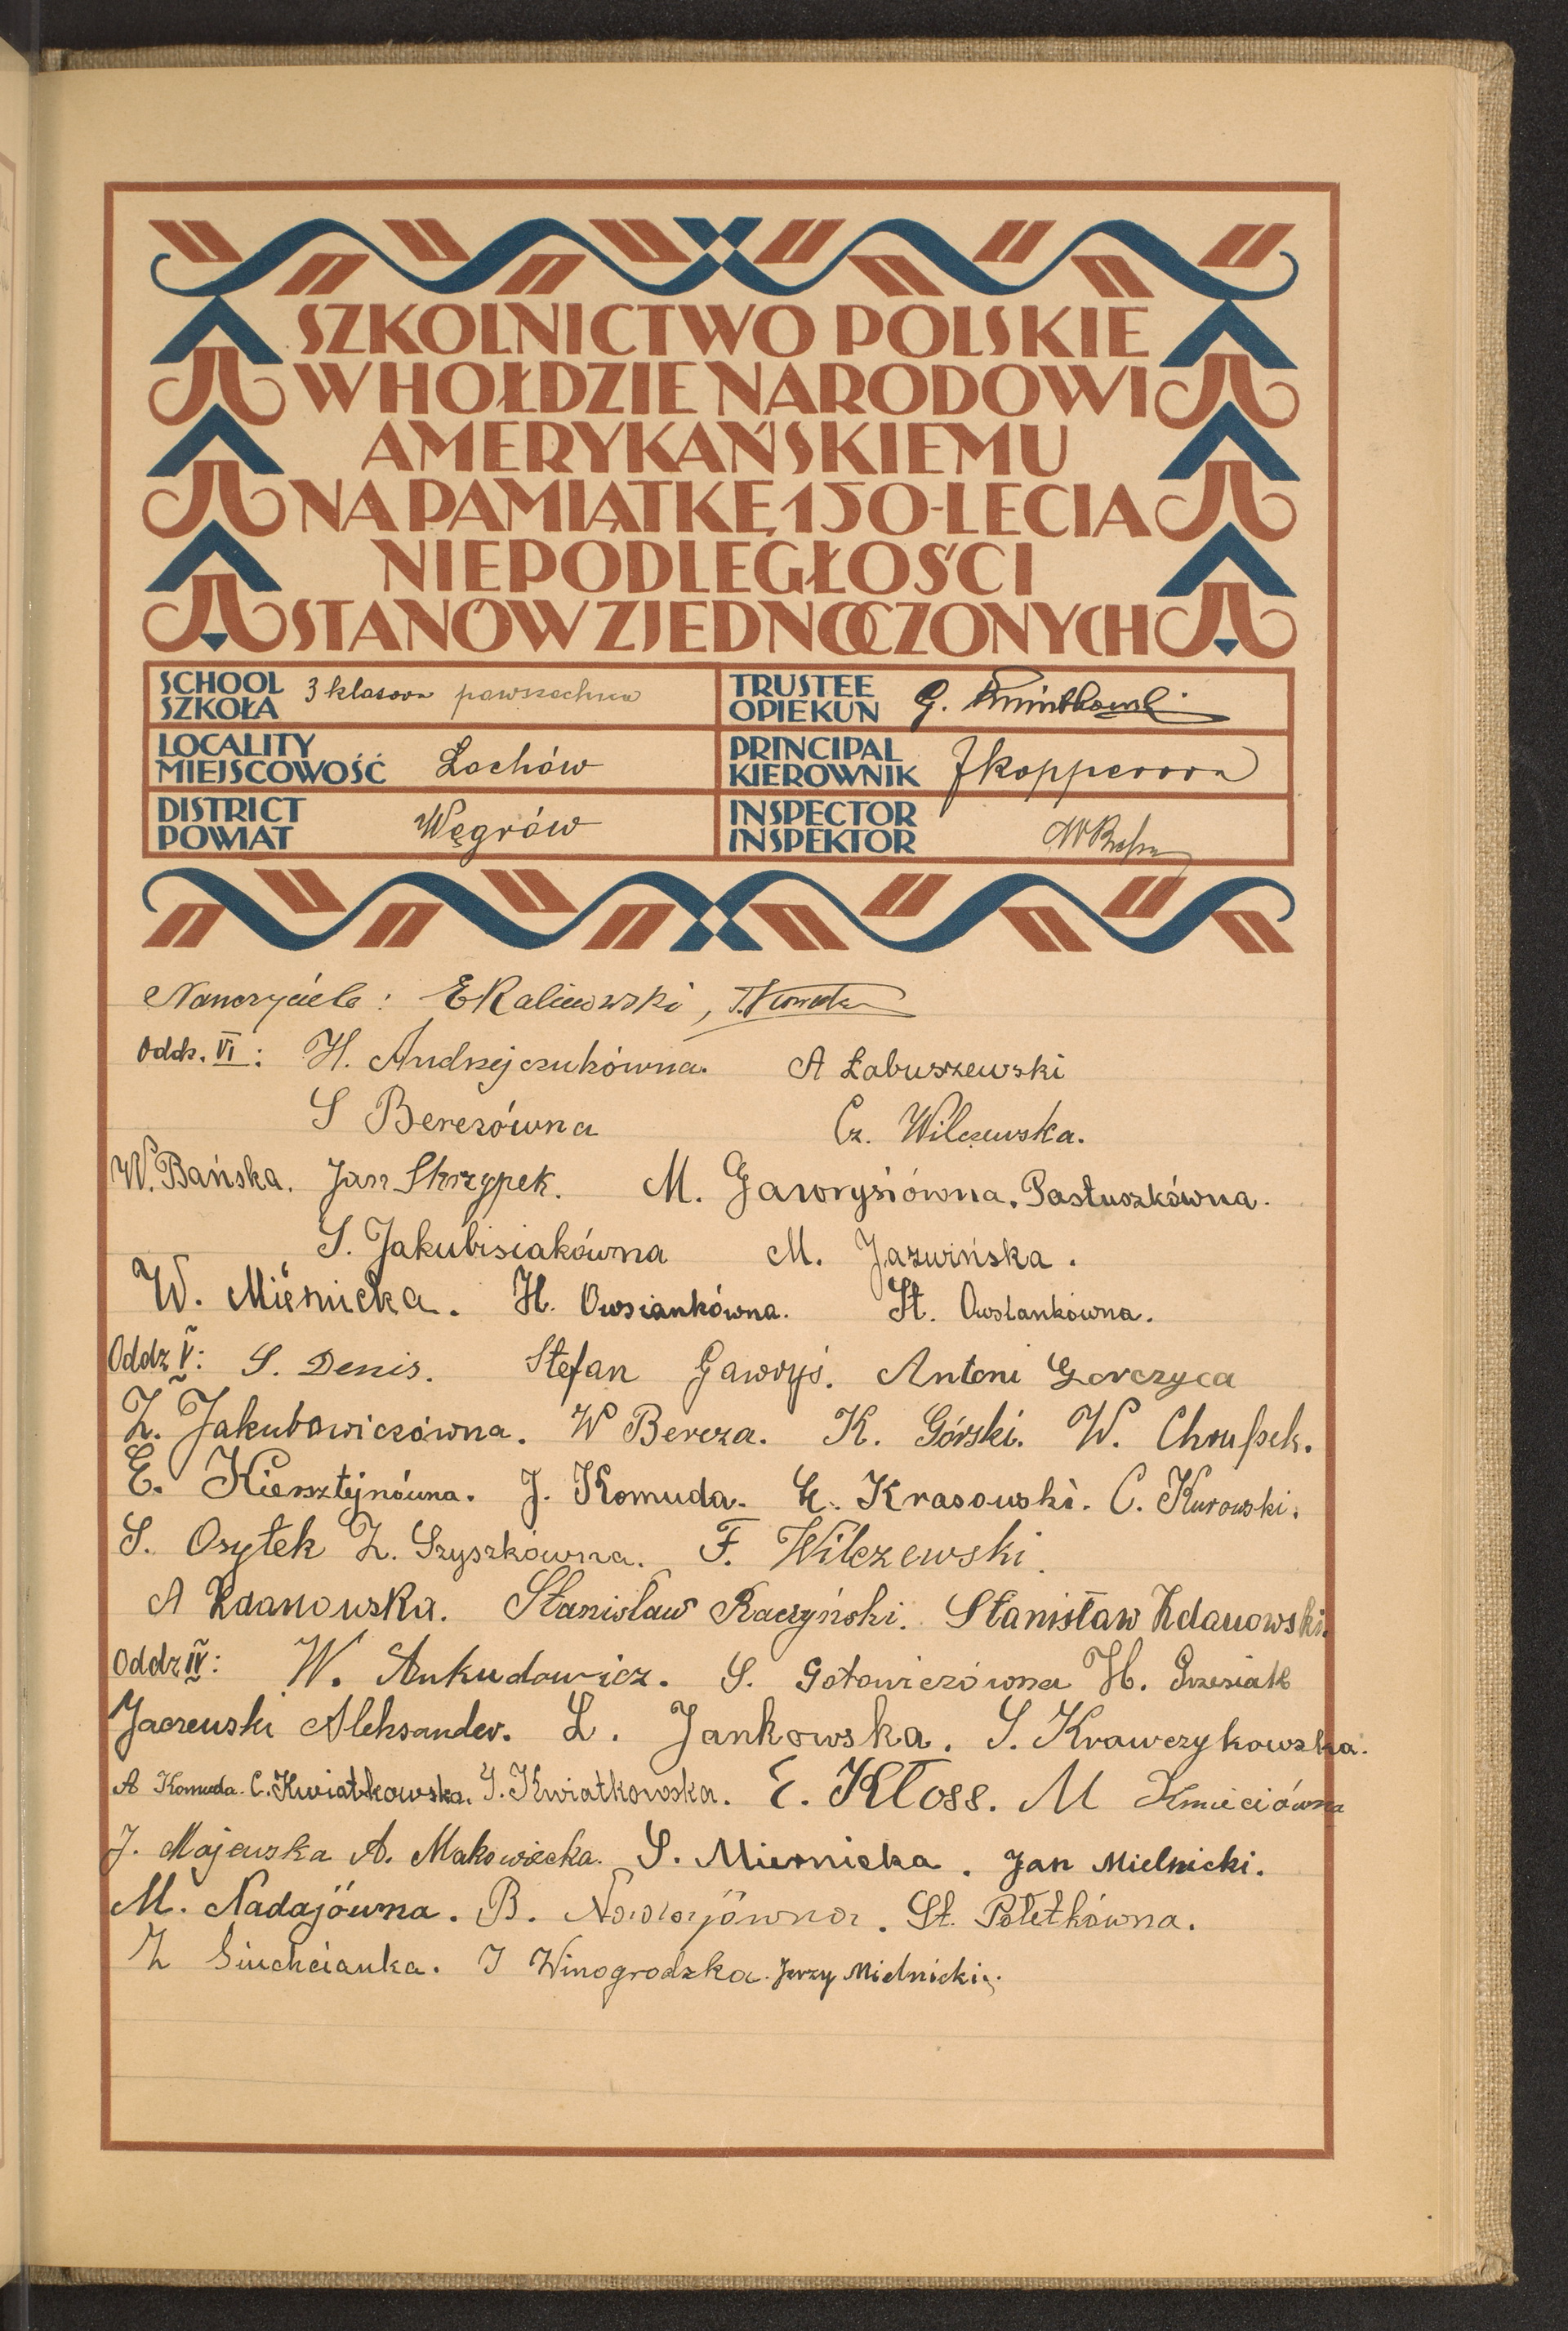 SZKOLNICTWO POLSKIE
W HOŁDZIE NARODOWI
AMERYKAŃSKIEMU
NA PAMIĄTKĘ 150-LECIA
NIEPODLEGŁOŚCI
STANÓW ZJEDNOCZONYCH
SCHOOL SZKOŁA 3 klasowa powszechna
TRUSTEE OPIEKUN G.
LOCALITY MIEJSCOWOŚĆ Łochów
PRINCIPAL KIEROWNIK JKopperowa
DISTRICT POWIAT Węgrów
INSPECTOR INSPEKTOR
Nauczyciele: EKalinowski,
Oddz. VI: H. Andrzejczukówna. A Łabuszewski
S Berezówna Cz. Wilczewska.
W. Bańska. Jan Skrzypek. M. Gawrysiówna. Pastuszkówna.
S. Jakubisiakówna M. Jazwińska.
W. Miernicka. H. Owsiankówna. St. Owsiankówna.
Oddz V: S. Denis. Stefan Gawryś. Antoni Gorczyca
Z. Jakubowiczówna. W Bereza. K. Górski. W. Chrupek.
E. Kiersztejnówna. J. Komuda. E. Krasowski. C. Kurowski.
S. Osytek Z. Szyszkówna. F. Wilczewski.
A Zdanowska. Stanisław Raczyński. Stanisław Zdanowski.
Oddz IV: W. Ankudowicz. S. Gotowiczówna H.
Jaczewski Aleksander. L. Jankowska. S. Krawczykowska.
A Komuda. C. Kwiatkowska. J. Kwiatkowska. E. Kłoss. M Kmieciówna
J. Majewska A. Makowiecka. S. Miernicka. Jan Mielnicki.
M. Nadajówna. B. Nadajówna. St. Połetkówna.
Z Siuchcianka. J Winogrodzka. Jerzy Mielnicki.